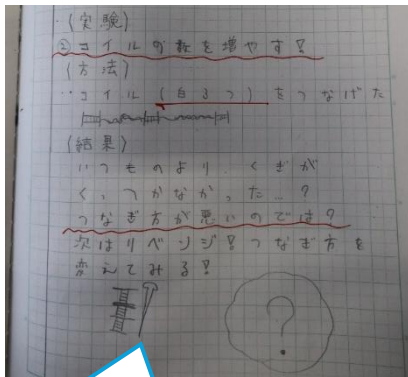 (実験)
②コイルの数を増やす!
(方法)
コイル(白3つ)をつなげた
(結果)
いつものより、くぎが
くっつかなかった…?
つなぎ方が悪いのでは?
次はリベンジ!つなぎ方を
変えてみる!
?